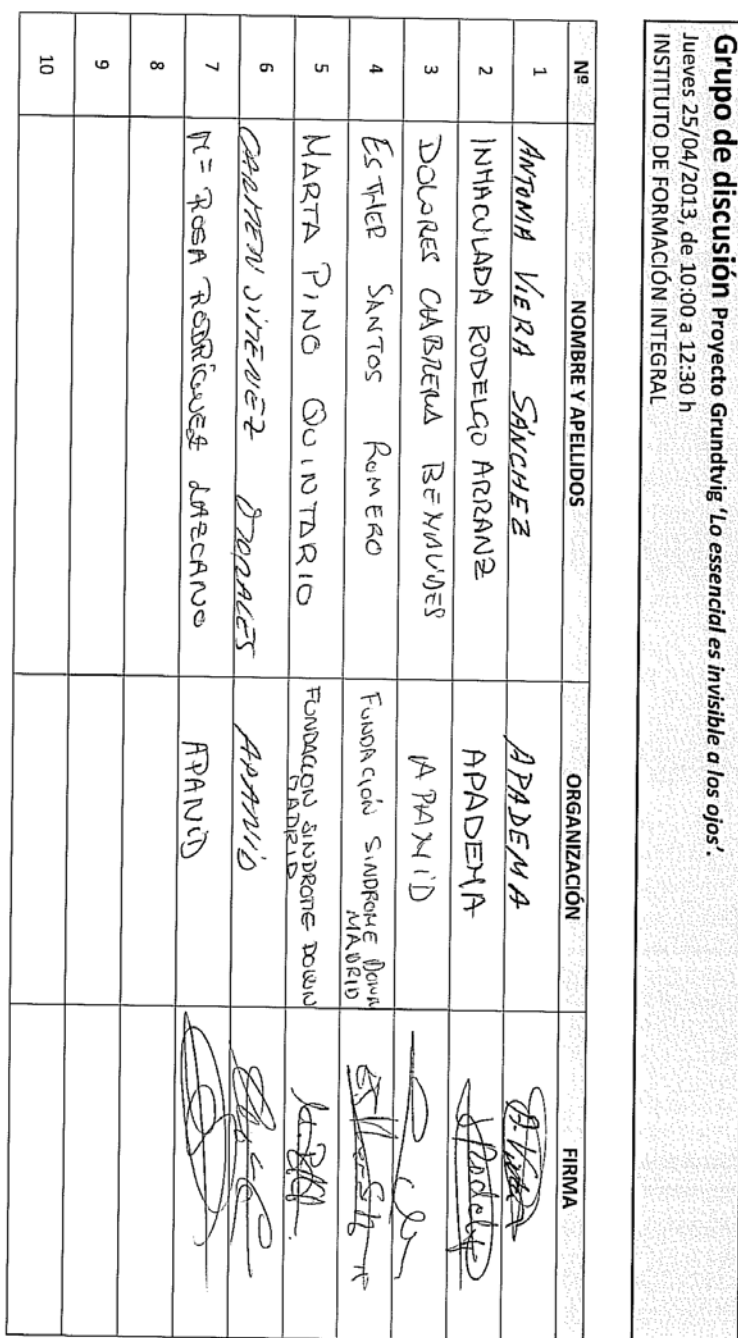 Grupo de discusión Proyecto Grundtvig 'Lo essencial es invisible a los ojos'.
Jueves 25/04/2013, de 10:00 a 12:30 h
INSTITUTO DE FORMACIÓN INTEGRAL
Nº NOMBRE Y APELLIDOS ORGANIZACIÓN FIRMA
1 ANTONIA VIERA SÁNCHEZ APADEMA
2 INMACULADA RODELGO ARRANZ APADEMA
3 DOLORES CABRERA BENAVIDES APANID
4 ESTHER SANTOS ROMERO FUNDACIÓN SINDROME DOWN
MADRID
5 MARTA PINO QUINTARIO FUNDACION SINDROME DOWN
MADRID
6 CARMEN JIMENEZ MORALES APANID
7 Mª ROSA RODRÍGUEZ LAZCANO APANID
8
9
10